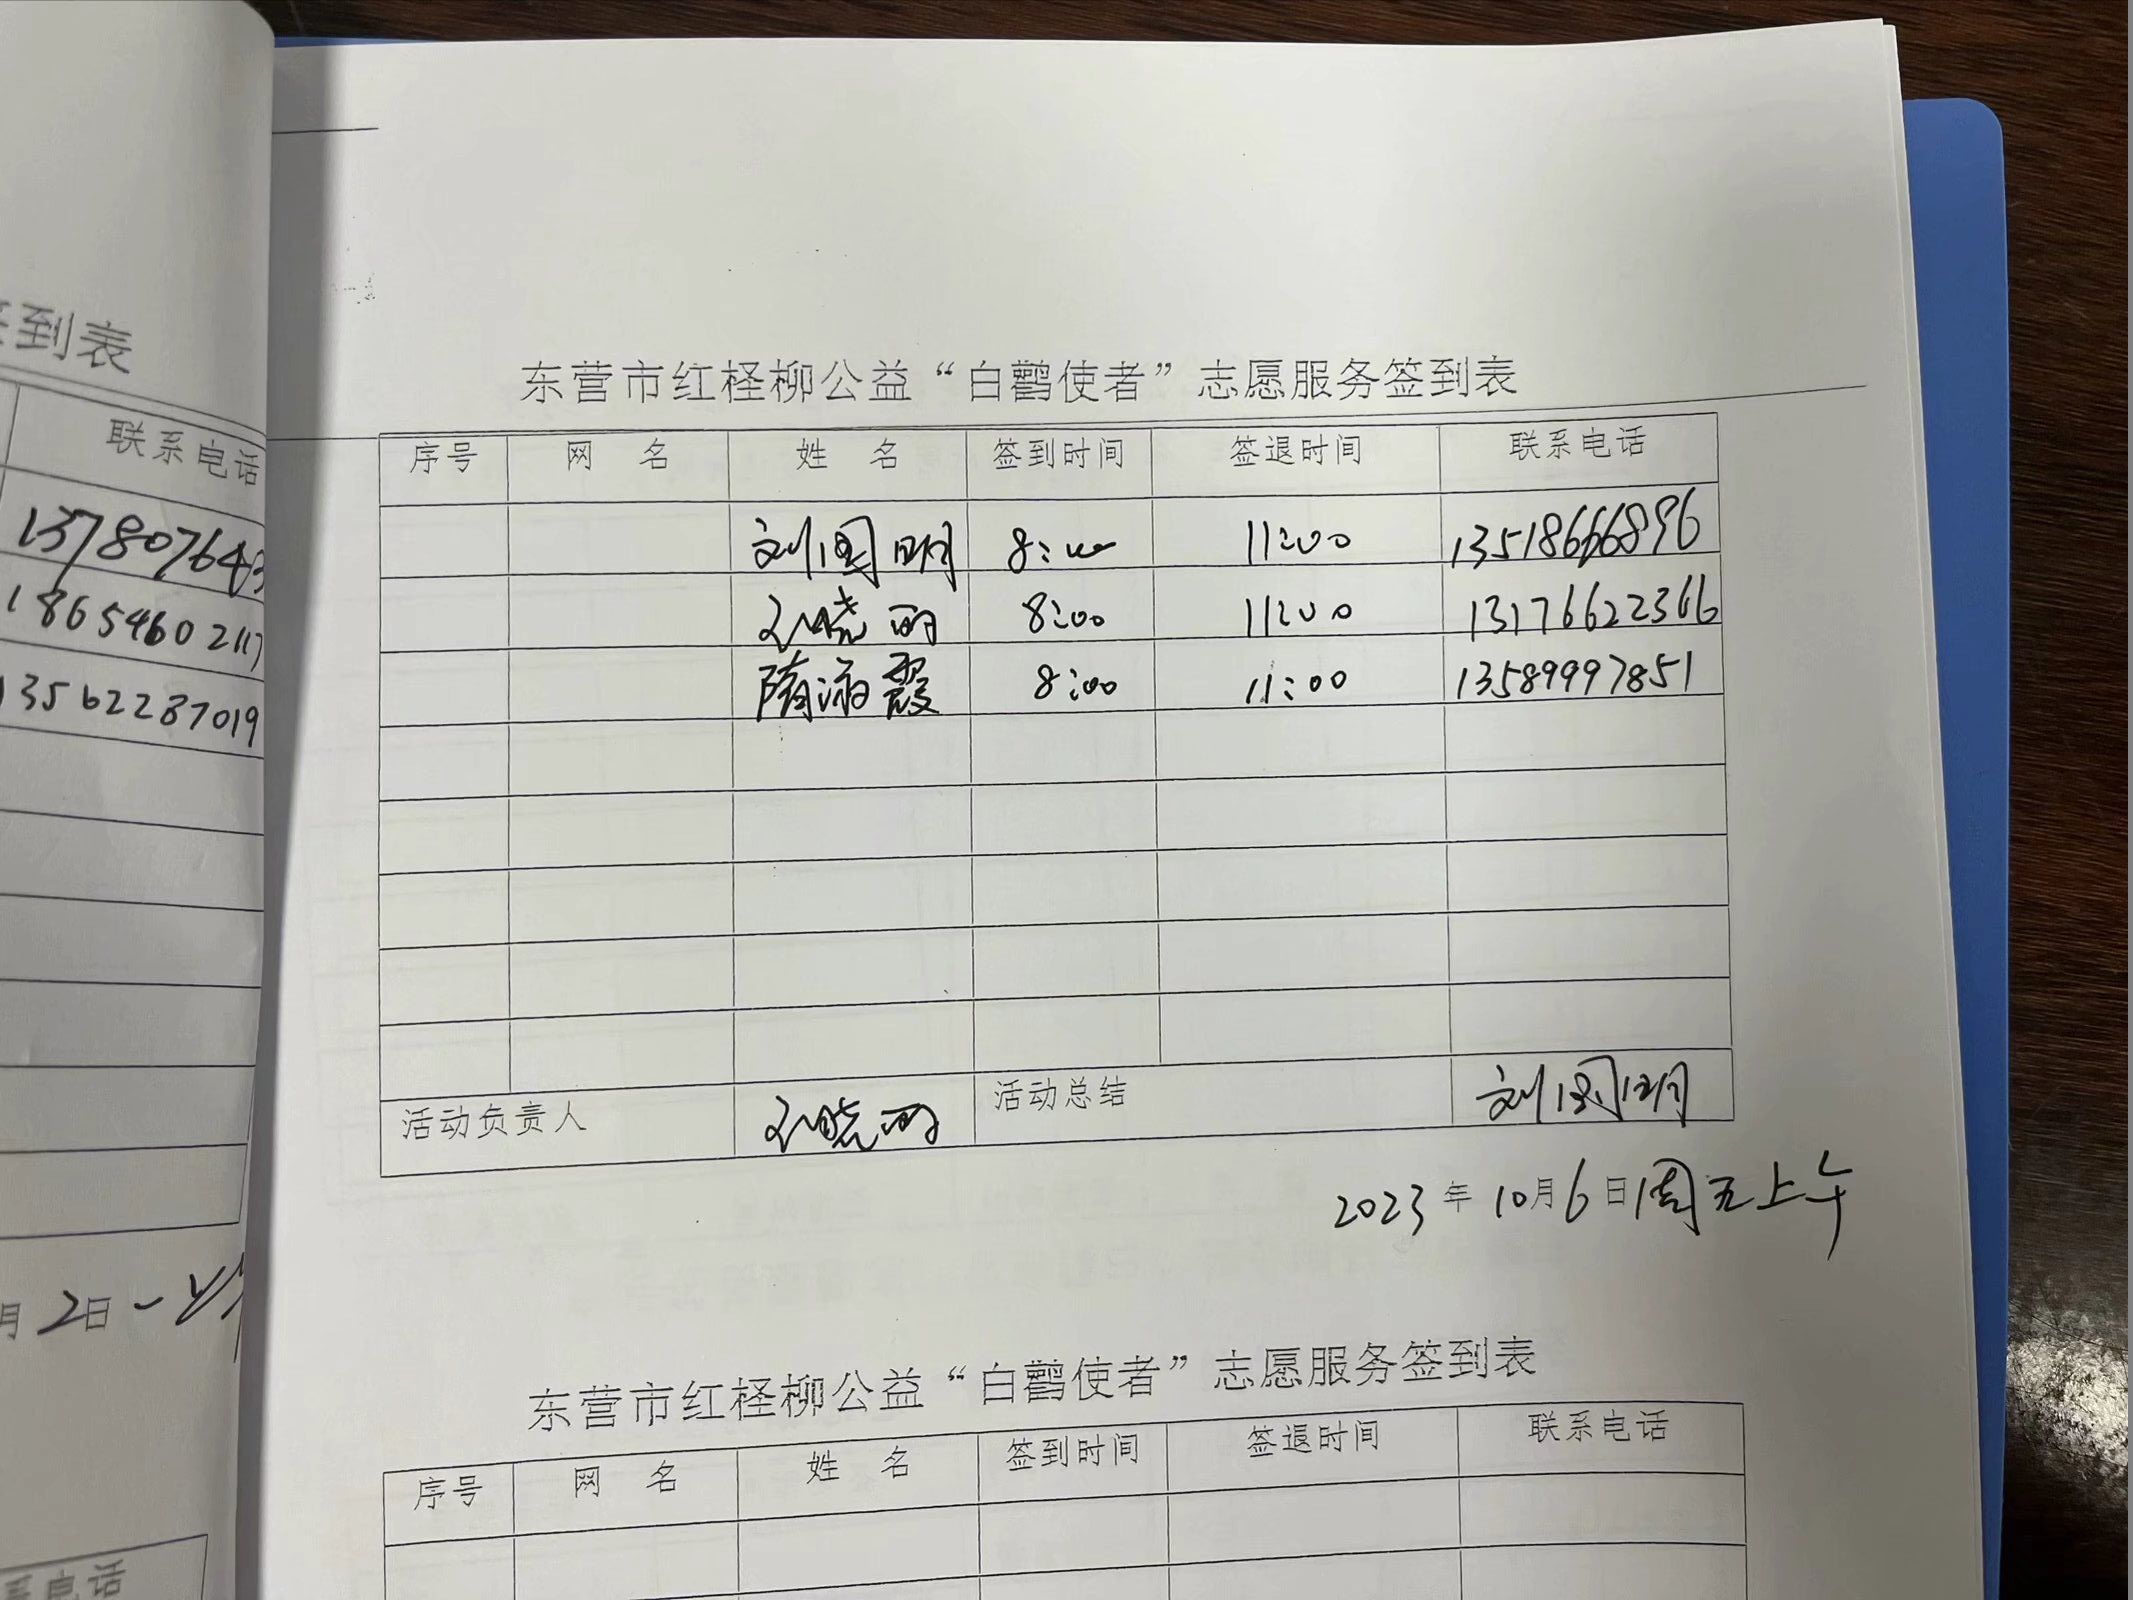 到表
联系电话
137807643
18654602117
13562287019
月2日
电话
东营市红柽柳公益“白鹳使者”志愿服务签到表
序号 网 名 姓 名 签到时间 签退时间 联系电话
刘国明 8:00 11:00 13518666896
8:00 11:00 13176622366
隋海霞 8:00 11:00 13589997851
活动负责人 活动总结 刘国明
2023年10月6日周五上午
东营市红柽柳公益“白鹳使者”志愿服务签到表
序号 网 名 姓 名 签到时间 签退时间 联系电话